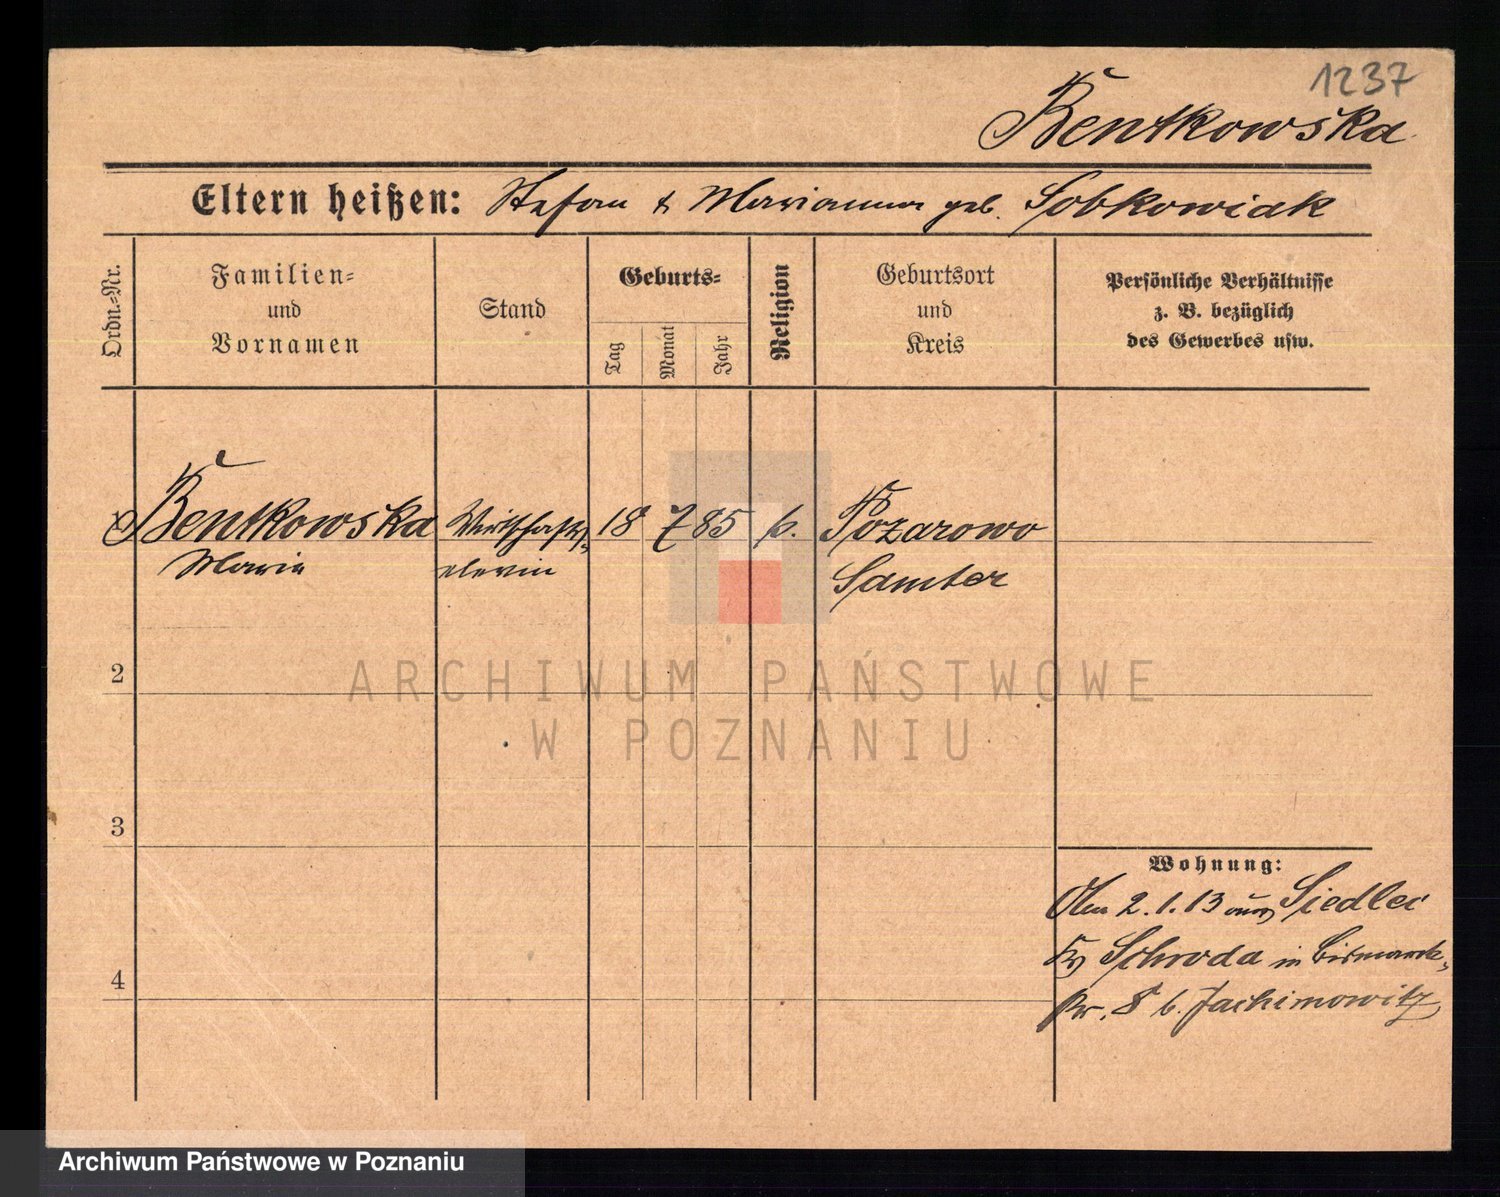 1237
Bentkowska
Eltern heißen: Stefan & Marianna geb. Sobkowiak
Ordn.-Nr.
Familien-
und
Vornamen
Stand
Geburts-
Tag
Monat
Jahr
Religion
Geburtsort
und
Kreis
Persönliche Verhältnisse
z. B. bezüglich
des Gewerbes usw.
Bentkowska Wirtschafts- 18 7 85 k. Pozarowo
Marie elevin Samter
2
3
4
Wohnung:
Am 2.1.13 aus Siedlec
Kr Schroda in Bismarck-
str. 8 b. Jachimowitz
ARCHIWUM PAŃSTWOWE
W POZNANIU
Archiwum Państwowe w Poznaniu